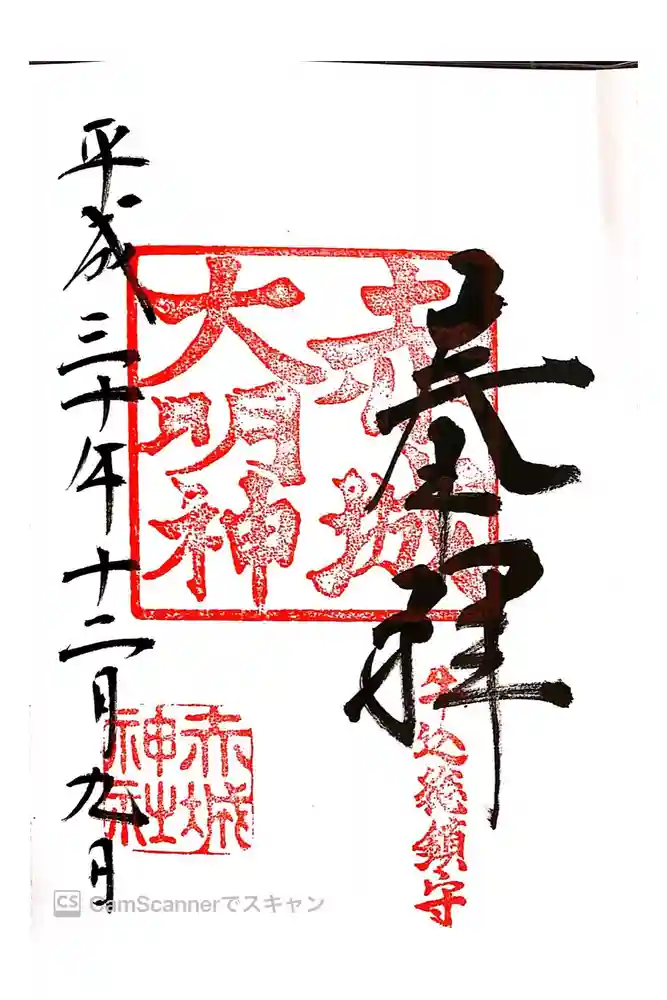 奉拝
赤城
大明神
牛込総鎮守
平成三十年十二月九日
赤城
神社
印
CS CamScannerでスキャン